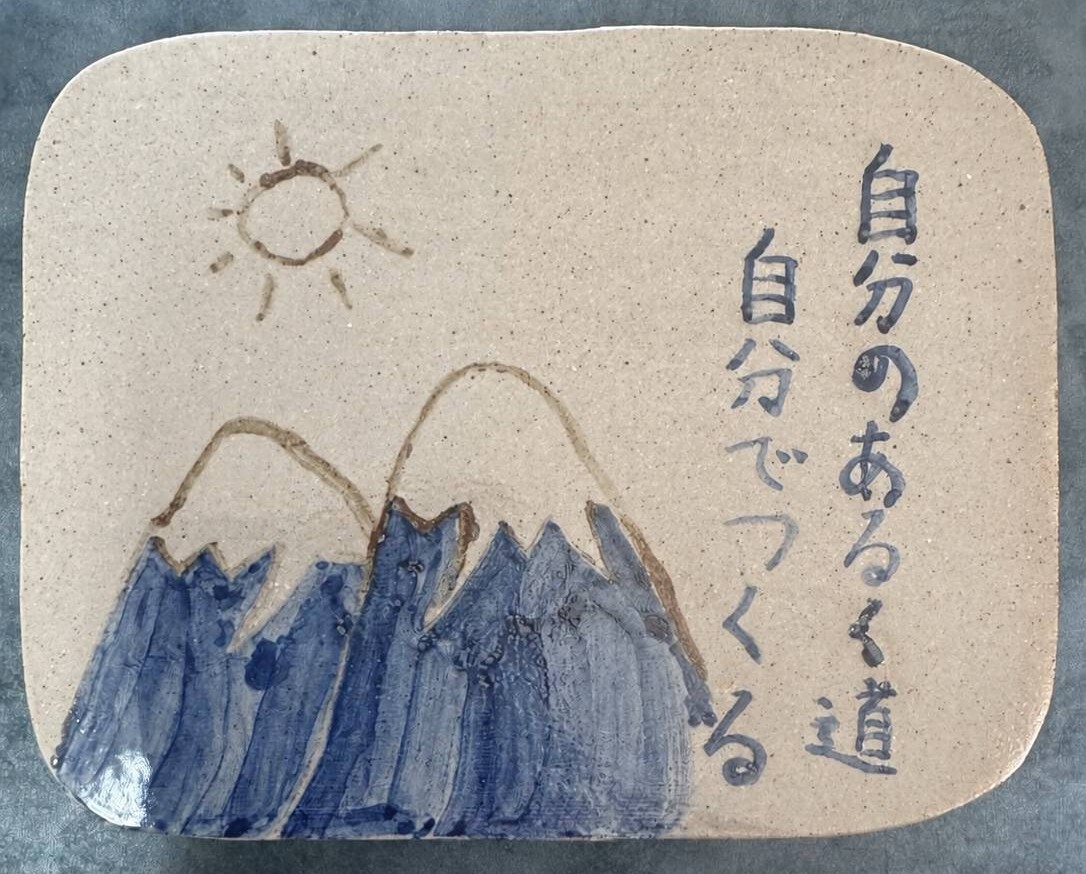 自分のあるく道
自分でつくる